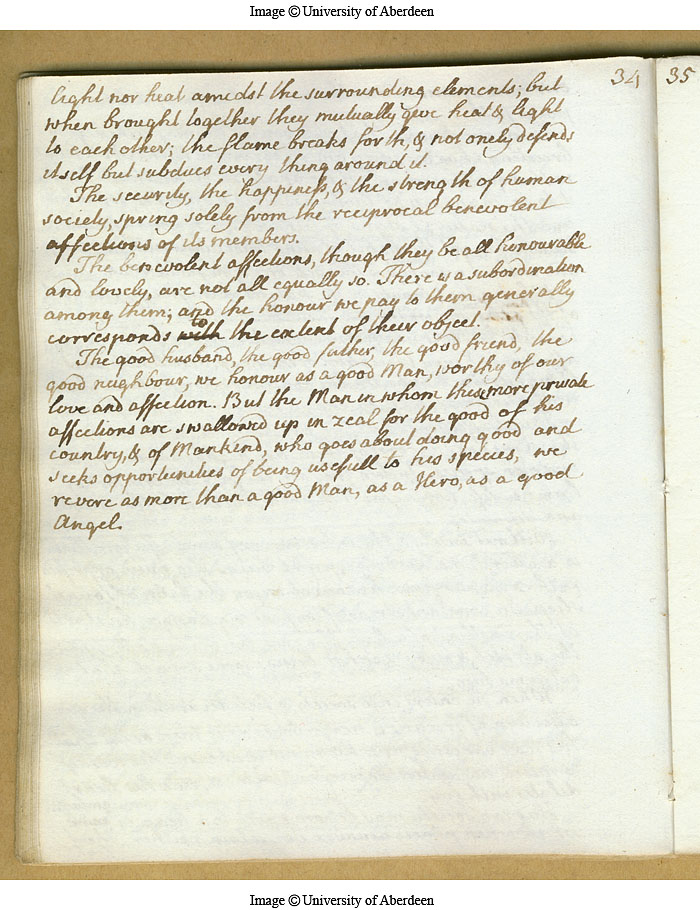 Image © University of Aberdeen
34
35
light nor heat amidst the surrounding elements; but
when brought together they mutually give heat & light
to each other; the flame breaks forth, & not onely defends
itself but subdues every thing around it.
The security, the happiness, & the strength of human
society, spring solely from the reciprocal benevolent
affections of its members.
The benevolent affections, though they be all honourable
and lovely, are not all equally so. There is a subordination
among them; and the honour we pay to them generally
corresponds with to the extent of their object.
The good husband, the good father, the good friend, the
good neighbour, we honour as a good Man, worthy of our
love and affection. But the Man in whom these more private
affections are swallowed up in zeal for the good of his
country, & of Mankind, who goes about doing good and
seeks opportunities of being usefull to his species, we
revere as more than a good Man, as a Hero, as a good
Angel.
Image © University of Aberdeen